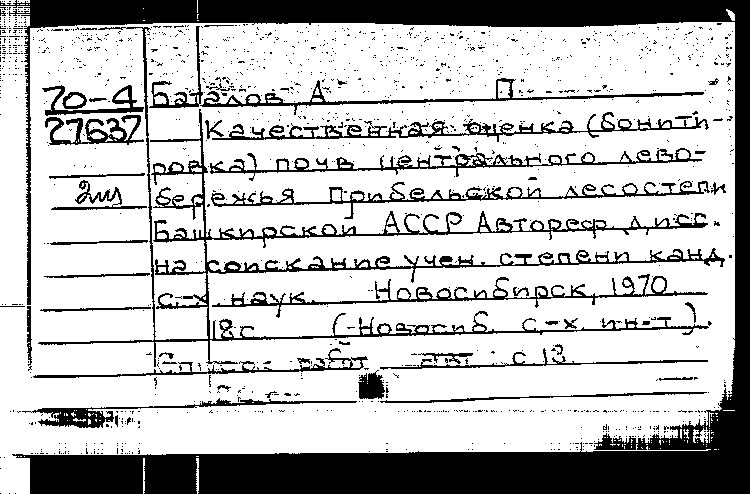 70-4 Баталов, А П
27637 Качественная оценка (бонити-
ровка) почв центрального лево-
2ил бережья Прибельской лесостепи
Башкирской АССР Автореф дисс.
на соискание учен. степени канд.
с.-х. наук. Новосибирск, 1970.
18с (Новосиб. с.-х. ин-т).
Список работ авт: с 18